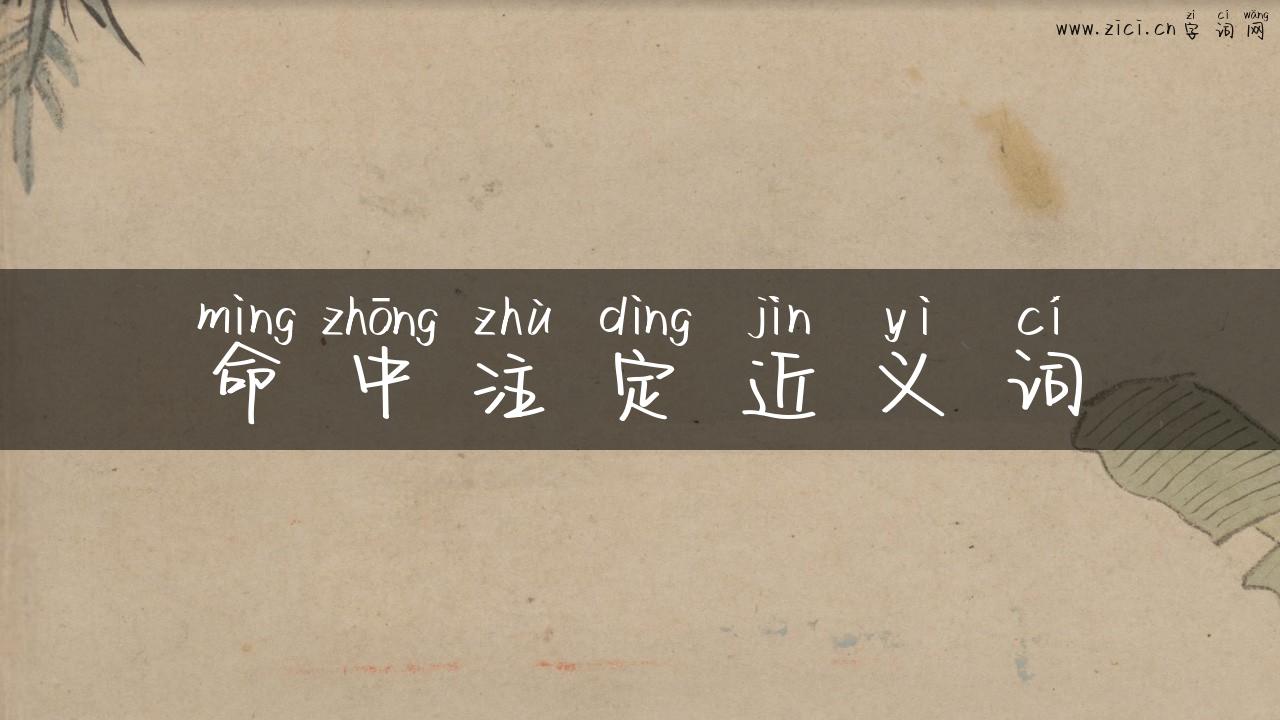 zì cí wǎng
www.zici.cn 字词网
mìng zhōng zhù dìng jìn yì cí
命中注定近义词